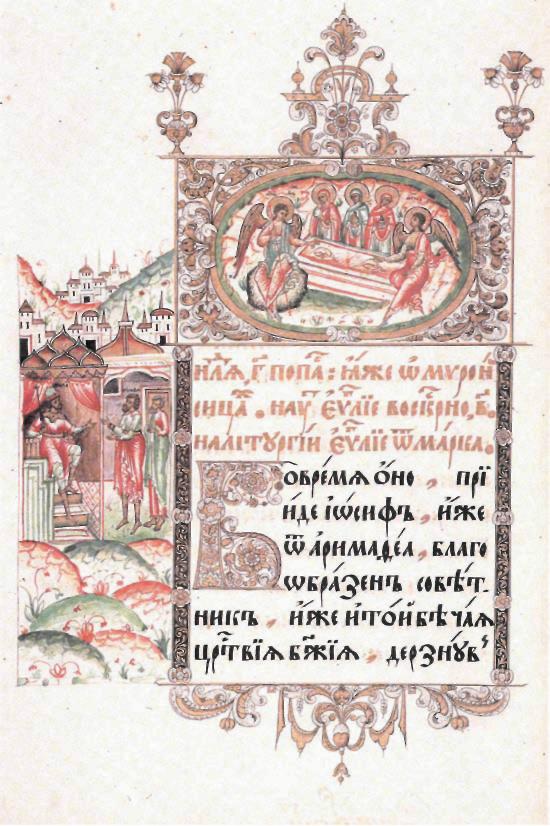 нлѧ, г҃ по па҃с: ꙗ҆́же ѡ҆ муроⷩ҇
сицаⷯ. на ᲂу҆т҃. є҆ѵⷢ҇лїе воскрⷭ҇но, в҃.
на літургїи є҆ѵⷢ҇лїе ѿ ма́рка.
Во вре́мѧ ѻ҆́но, прїи́
иде іѡ́сифъ, и҆́же
ѿ аримаѳе́а, благо
ѡбра́зенъ совѣ́т
никъ, и҆́же и҆ то́й бѣ̀ ча́ѧ
црⷭ҇твїѧ бж҃їѧ, дерзнꙋ́въ